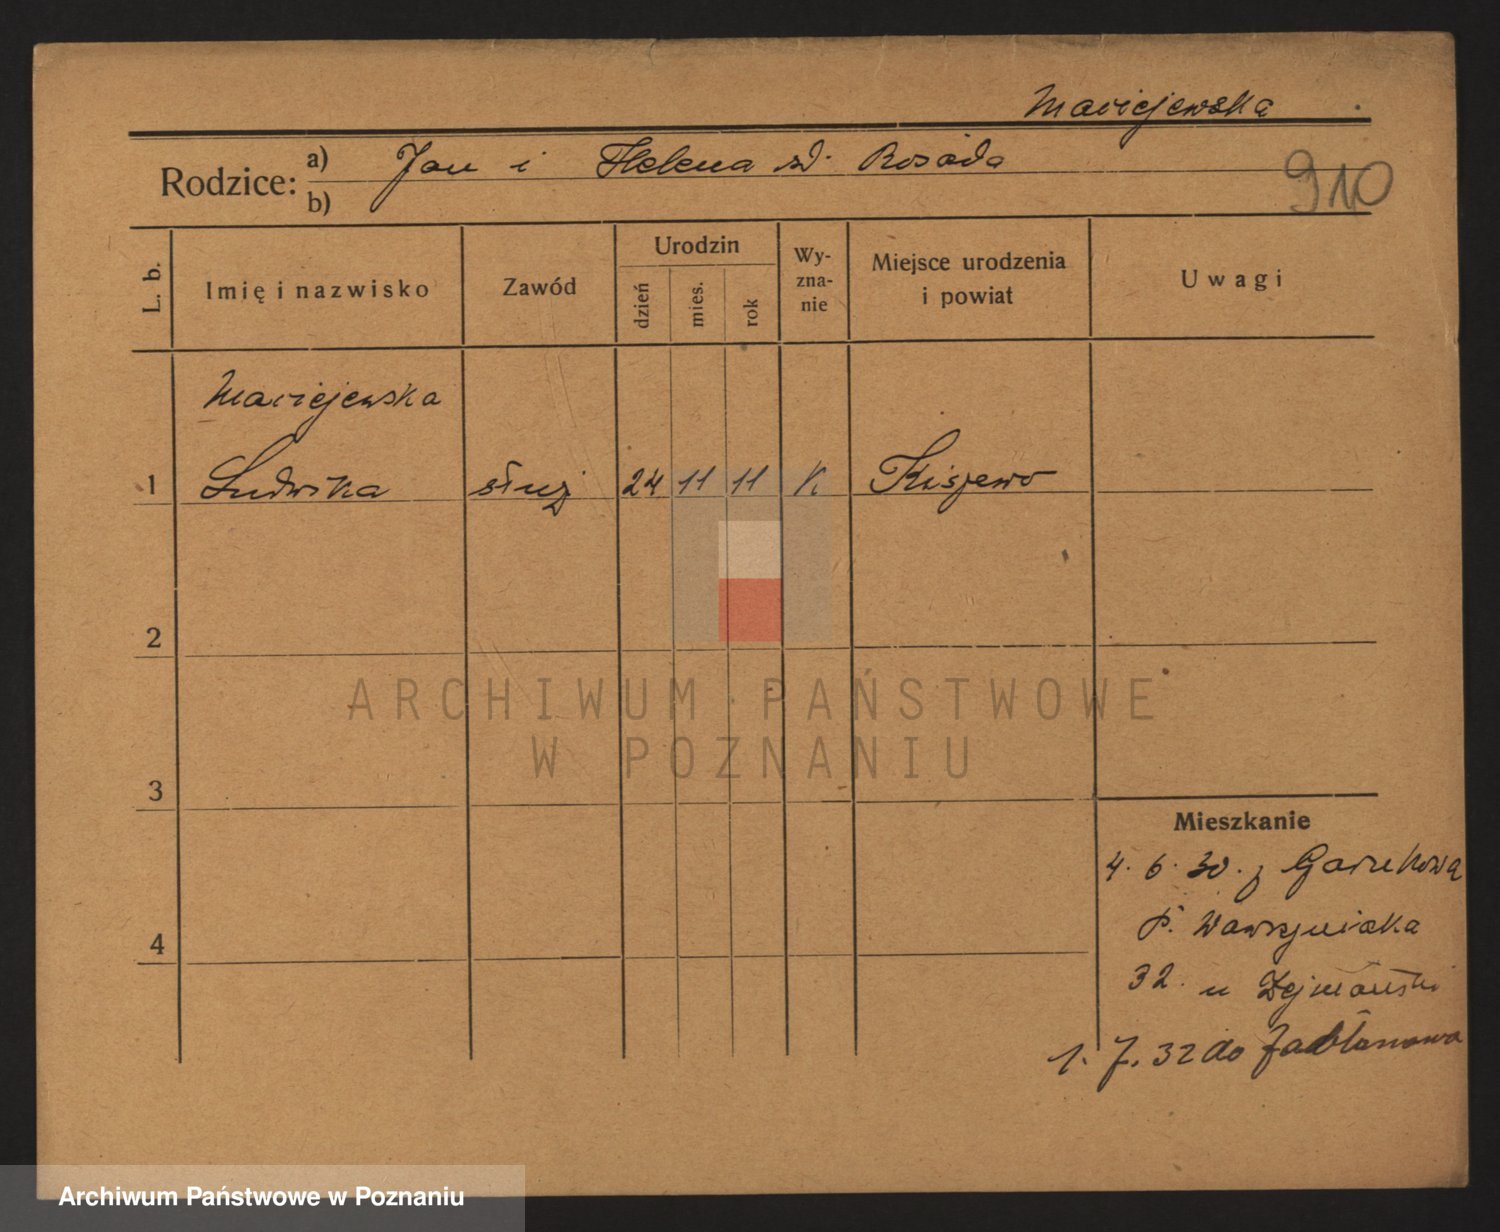 Maciejewska
Rodzice: a) Jan i Helena zd. Rosada
b)
910
L. b.
Imię i nazwisko
Zawód
Urodzin
dzień
mies.
rok
Wy-
zna-
nie
Miejsce urodzenia
i powiat
Uwagi
Maciejewska
1 Ludwika służ 24 11 11 K Kiszewo
2
3
4
Mieszkanie
4. 6. 30. z
P. Wawrzyniaka
32. u
1. 7. 32 do Jabłonowa
ARCHIWUM PAŃSTWOWE
W POZNANIU
Archiwum Państwowe w Poznaniu